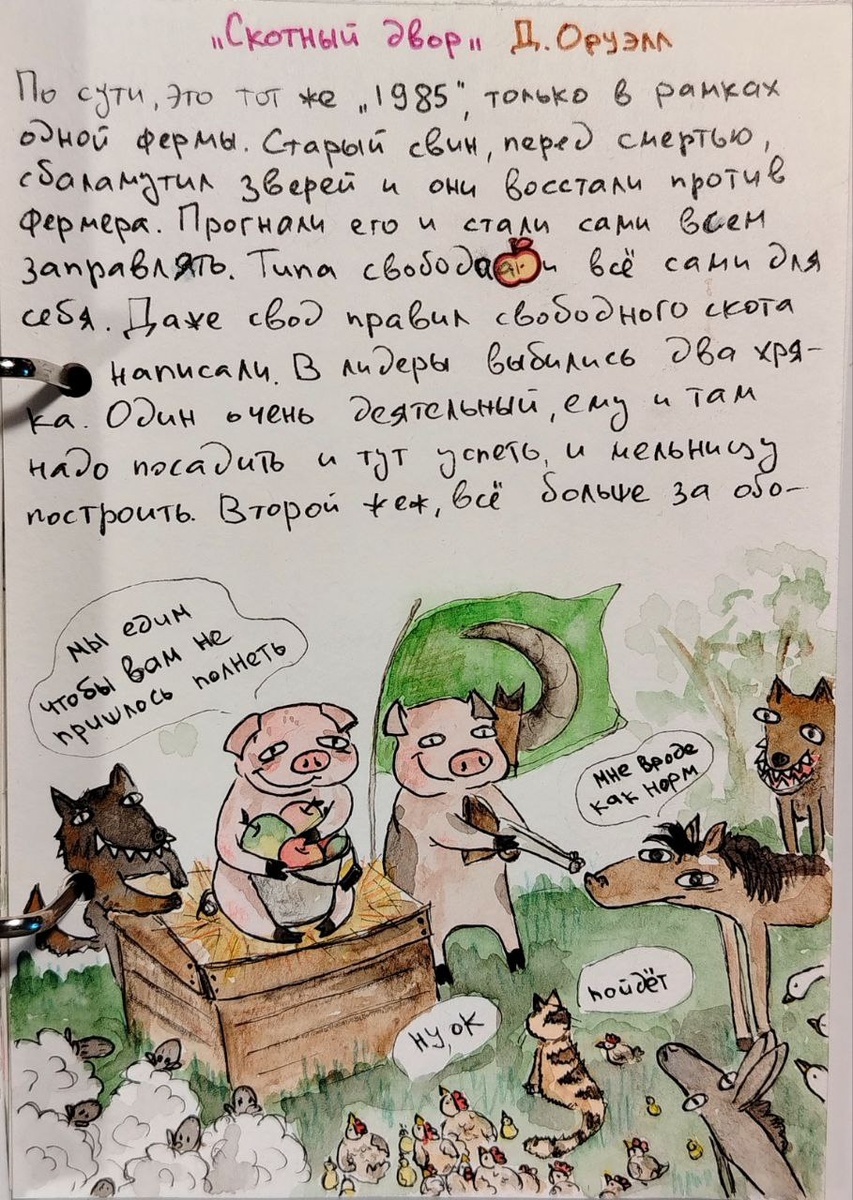 „Скотный двор„ Д. Оруэлл
По сути, это тот же „1985”, только в рамках
одной фермы. Старый свин, перед смертью,
сбаламутил зверей и они восстали против
фермера. Прогнали его и стали сами всем
заправлять. Типа свобода и всё сами для
себя. Даже свод правил свободного скота
написали. В лидеры выбились два хря-
ка. Один очень деятельный, ему и там
надо посадить и тут успеть, и мельницу
построить. Второй жеж, всё больше за обо-
мы едим
чтобы вам не
пришлось полнеть
мне вроде
как норм
пойдёт
ну, ок